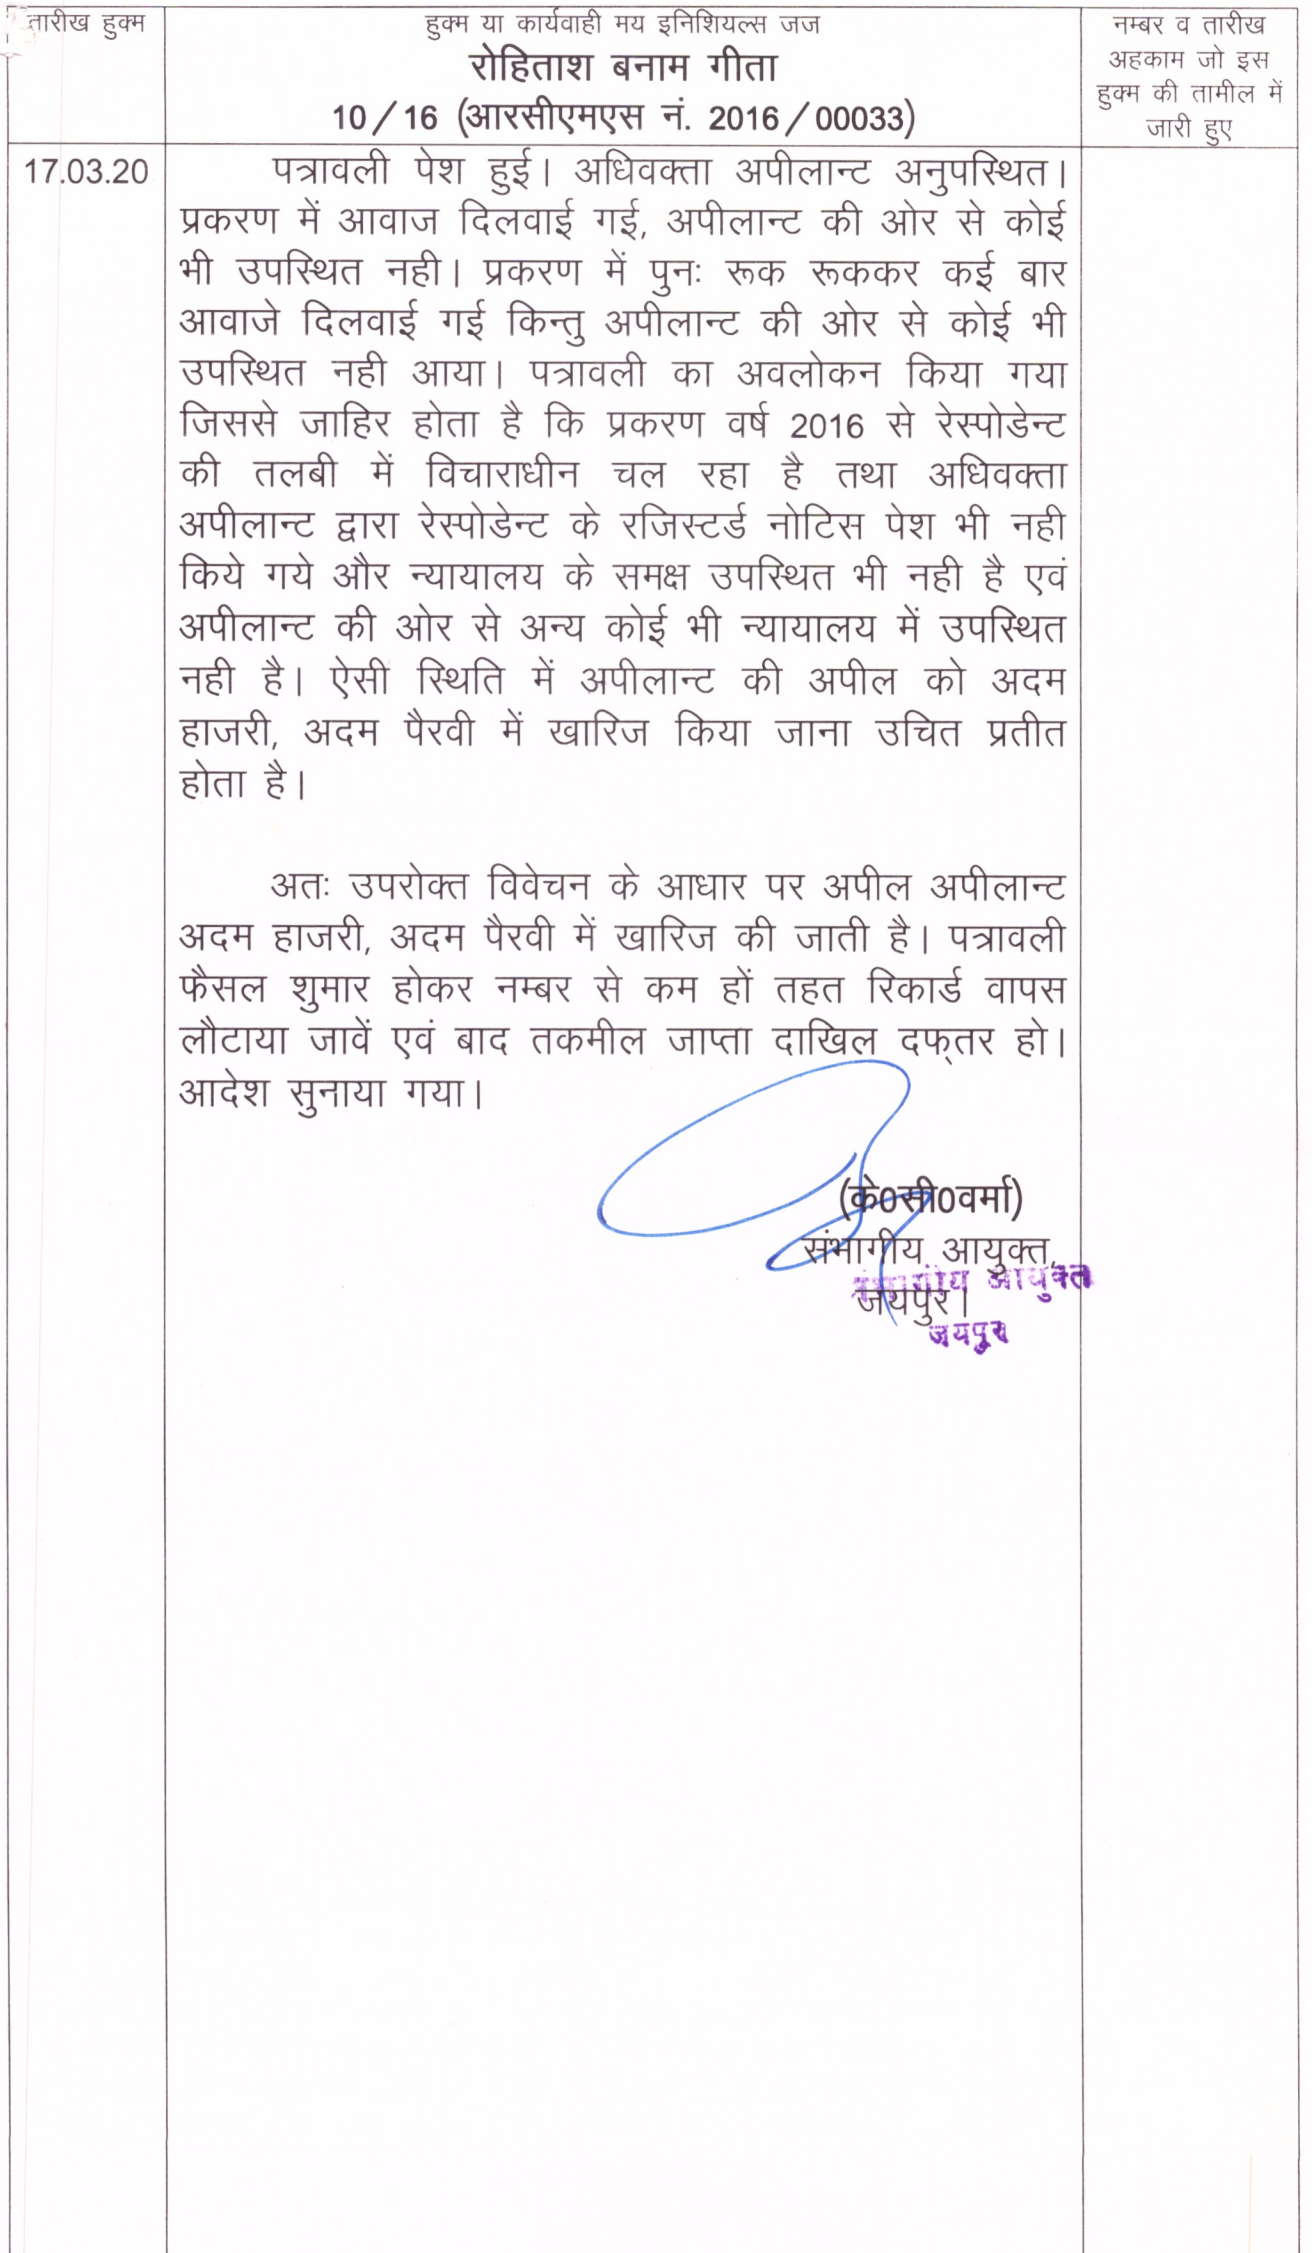 तारीख हुक्म
हुक्म या कार्यवाही मय इनिशियल्स जज
रोहिताश बनाम गीता
10/16 (आरसीएमएस नं. 2016/00033)
नम्बर व तारीख
अहकाम जो इस
हुक्म की तामील में
जारी हुए
17.03.20
पत्रावली पेश हुई। अधिवक्ता अपीलान्ट अनुपस्थित।
प्रकरण में आवाज दिलवाई गई, अपीलान्ट की ओर से कोई
भी उपस्थित नही। प्रकरण में पुनः रूक रूककर कई बार
आवाजे दिलवाई गई किन्तु अपीलान्ट की ओर से कोई भी
उपस्थित नही आया। पत्रावली का अवलोकन किया गया
जिससे जाहिर होता है कि प्रकरण वर्ष 2016 से रेस्पोडेन्ट
की तलबी में विचाराधीन चल रहा है तथा अधिवक्ता
अपीलान्ट द्वारा रेस्पोडेन्ट के रजिस्टर्ड नोटिस पेश भी नही
किये गये और न्यायालय के समक्ष उपस्थित भी नही है एवं
अपीलान्ट की ओर से अन्य कोई भी न्यायालय में उपस्थित
नही है। ऐसी स्थिति में अपीलान्ट की अपील को अदम
हाजरी, अदम पैरवी में खारिज किया जाना उचित प्रतीत
होता है।
अतः उपरोक्त विवेचन के आधार पर अपील अपीलान्ट
अदम हाजरी, अदम पैरवी में खारिज की जाती है। पत्रावली
फैसल शुमार होकर नम्बर से कम हों तहत रिकार्ड वापस
लौटाया जावें एवं बाद तकमील जाप्ता दाखिल दफ्तर हो।
आदेश सुनाया गया।
(के0सी0वर्मा)
संभागीय आयुक्त,
संभागीय आयुक्त
जयपुर।
जयपुर